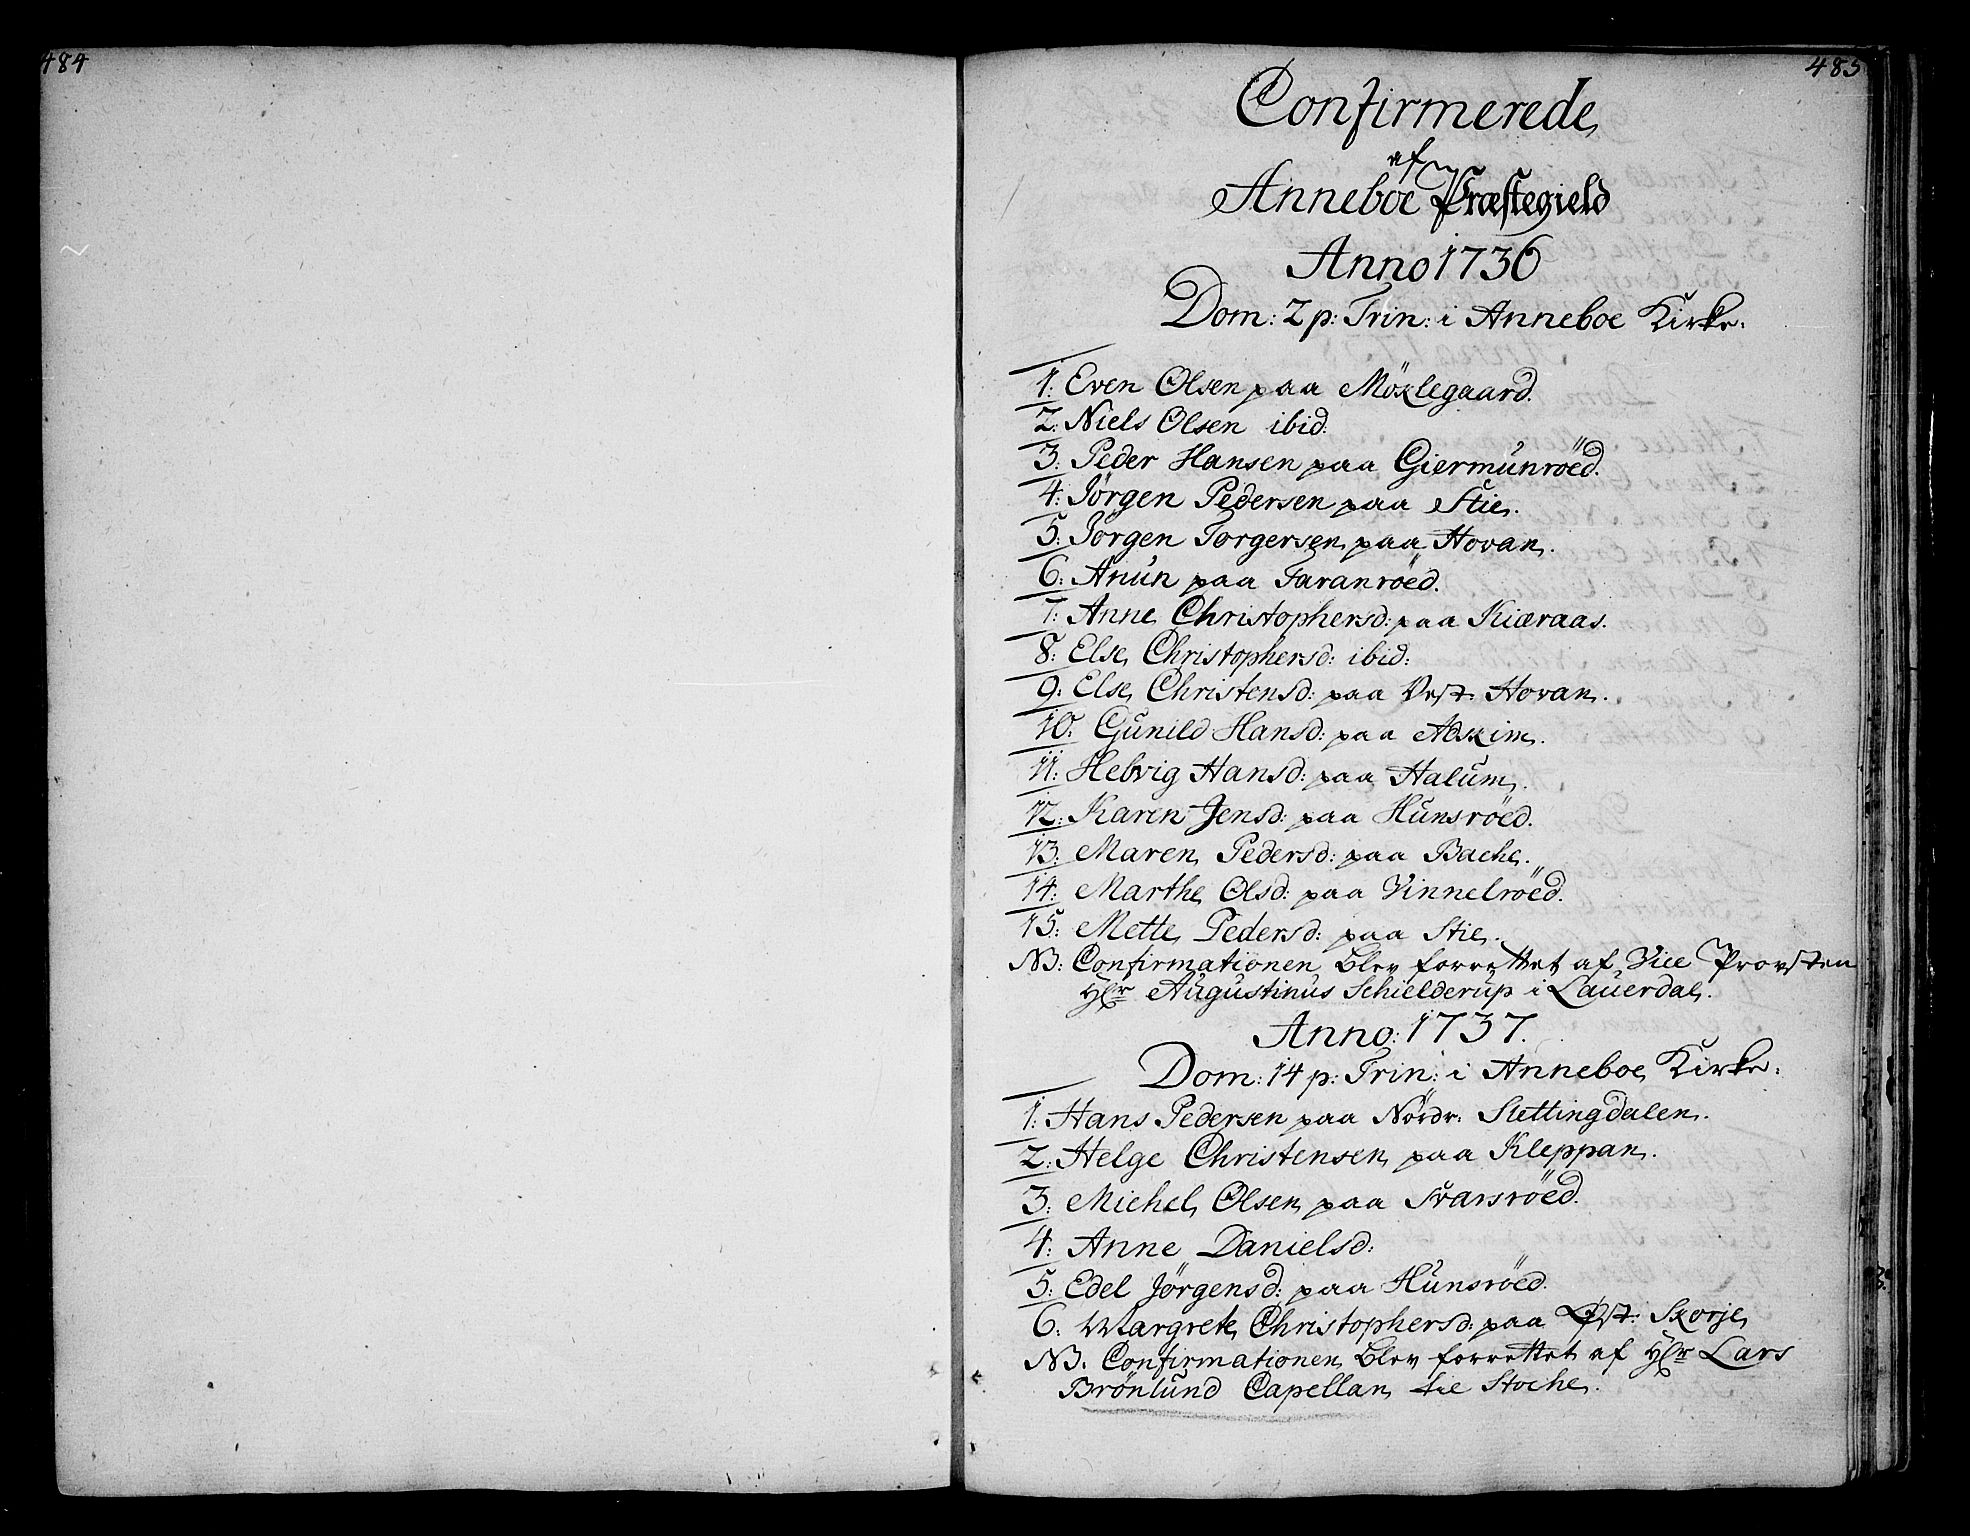 484
485
Confirmerede
af
Anneboe Præstegield
Anno 1736
Dom: 2 p: Trin: i Anneboe Kirke.
1: Even Olsen paa Möklegaard.
2: Niels Olsen ibid:
3: Peder Hansen paa Giermunröed.
4: Jörgen Pedersen paa Stie.
5: Jörgen Torgersen paa Hovan.
6: Anun paa Taranröed.
7: Anne Christophersd: paa Kiæraas.
8: Else Christophersd: ibid:
9: Else Christensd: paa Vest. Hovan.
10: Gunild Hansd: paa Adskim.
11: Helvig Hansd: paa Halum.
12: Karen Jensd: paa Hunsröed.
13: Maren Pedersd: paa Bache.
14: Marthe Olsd: paa Vinnelröed.
15: Mette Pedersd: paa Stie.
NB: Confirmationen blev forrettet af Vice Provsten
Hr Augustinus Schielderup i Lauerdal.
Anno: 1737.
Dom: 14 p: Trin: i Anneboe Kirke.
1: Hans Pedersen paa Nördr: Slettingdalen.
2: Helge Christensen paa Kleppan.
3: Michel Olsen paa Svarsröed.
4: Anne Danielsd:
5: Edel Jörgensd: paa Hunsröed.
6: Margrete Christophersd: paa Øst: Skorje
NB. Confirmationen blev forrettet af Hr Lars
Brönlund Capellan til Stoche.